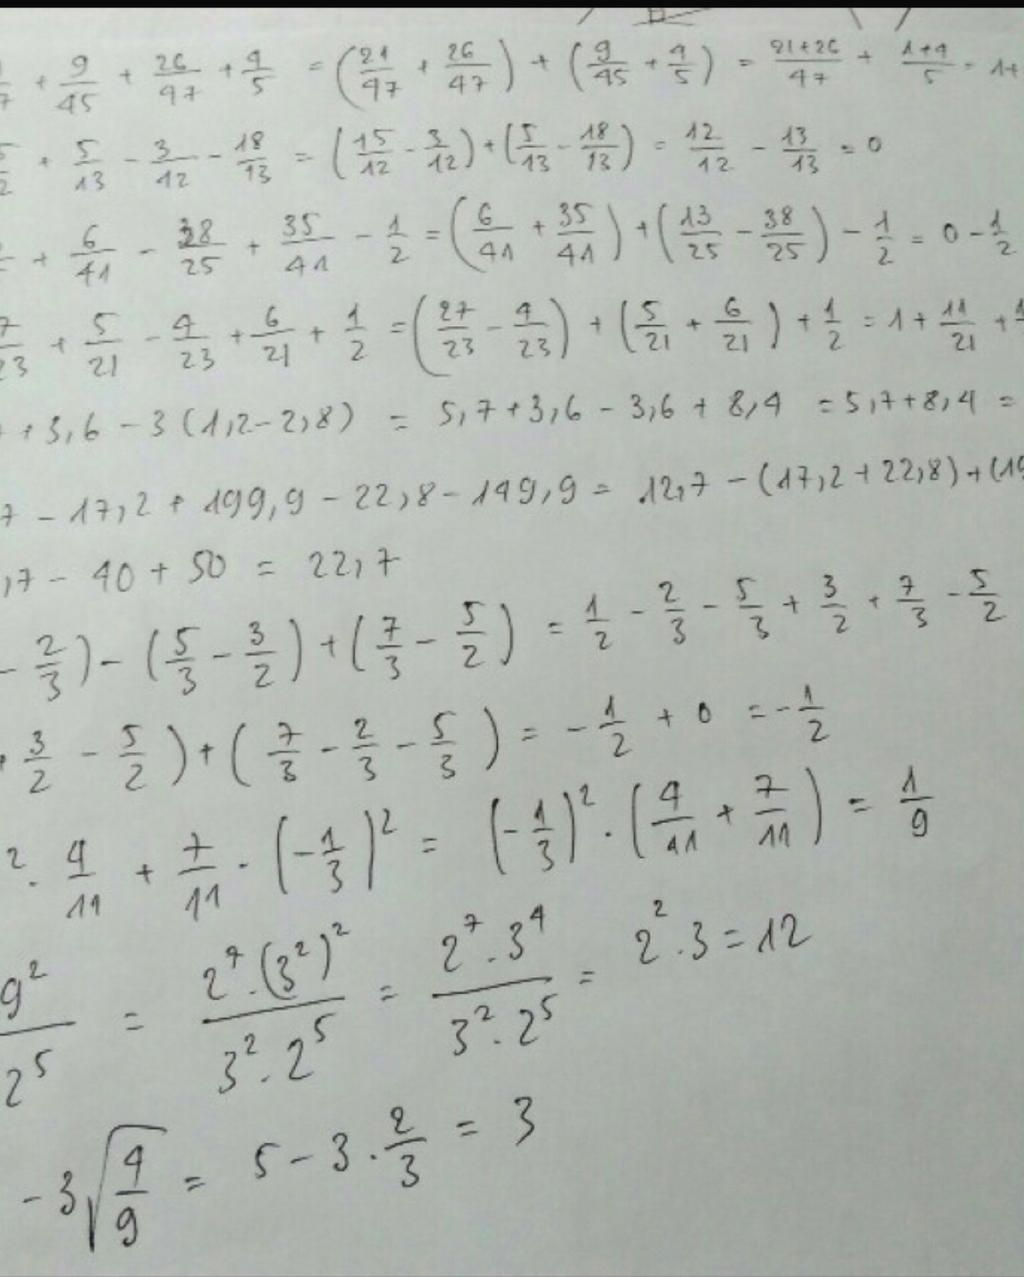 + 9/45 + 26/47 + 4/5 = (21/47 + 26/47) + (9/45 + 4/5) = 21+26/47 + 1+4/5 = 1+
+ 5/13 - 3/12 - 18/13 = (15/12 - 3/12) + (5/13 - 18/13) = 12/12 - 13/13 = 0
+ 6/41 - 38/25 + 35/41 - 1/2 = (6/41 + 35/41) + (13/25 - 38/25) - 1/2 = 0 - 1/2
+ 5/21 - 4/23 + 6/21 + 1/2 = (27/23 - 4/23) + (5/21 + 6/21) + 1/2 = 1 + 11/21 +
+ 3,6 - 3(1,2-2,8) = 5,7+3,6 - 3,6 + 8,4 = 5,7+8,4 =
7 - 17,2 + 199,9 - 22,8 - 149,9 = 12,7 - (17,2+22,8)+(19
,7 - 40 + 50 = 22,7
- 2/3) - (5/3 - 3/2) + (7/3 - 5/2) = 1/2 - 2/3 - 5/3 + 3/2 + 7/3 - 5/2
+ 3/2 - 5/2) + (7/3 - 2/3 - 5/3) = -1/2 + 0 = -1/2
² . 4/11 + 7/11 . (-1/3)² = (-1/3)² . (4/11 + 7/11) = 1/9
9²/2⁵ = 2⁷.(3²)²/3².2⁵ = 2⁷.3⁴/3².2⁵ = 2².3 = 12
-3√4/9 = 5 - 3 . 2/3 = 3